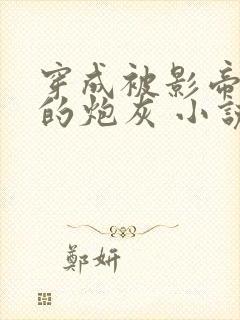 穿成被影帝
的炮灰 小說
鄭妍